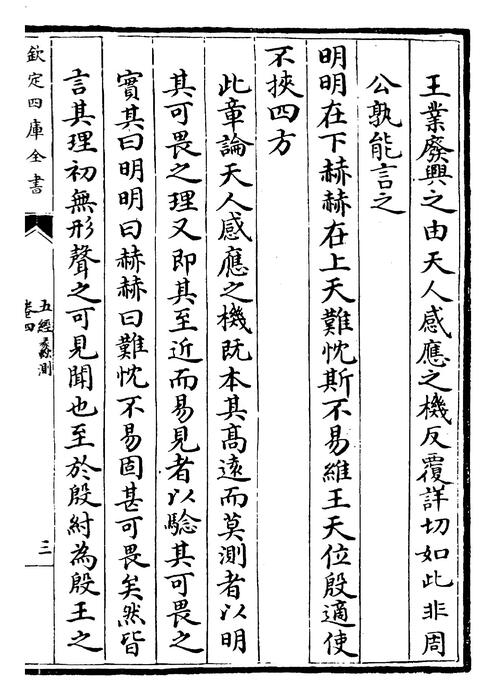 王業廢興之由天人感應之機反覆詳切如此非周
公孰能言之
明明在下赫赫在上天難忱斯不易維王天位殷適使
不挾四方
此章論天人感應之機既本其髙遠而莫測者以明
其可畏之理又即其至近而易見者以驗其可畏之
實其曰明明曰赫赫曰難忱不易固甚可畏矣然皆
言其理初無形聲之可見聞也至於殷紂為殷王之
欽定四庫全書
五經蠡測
卷四
三